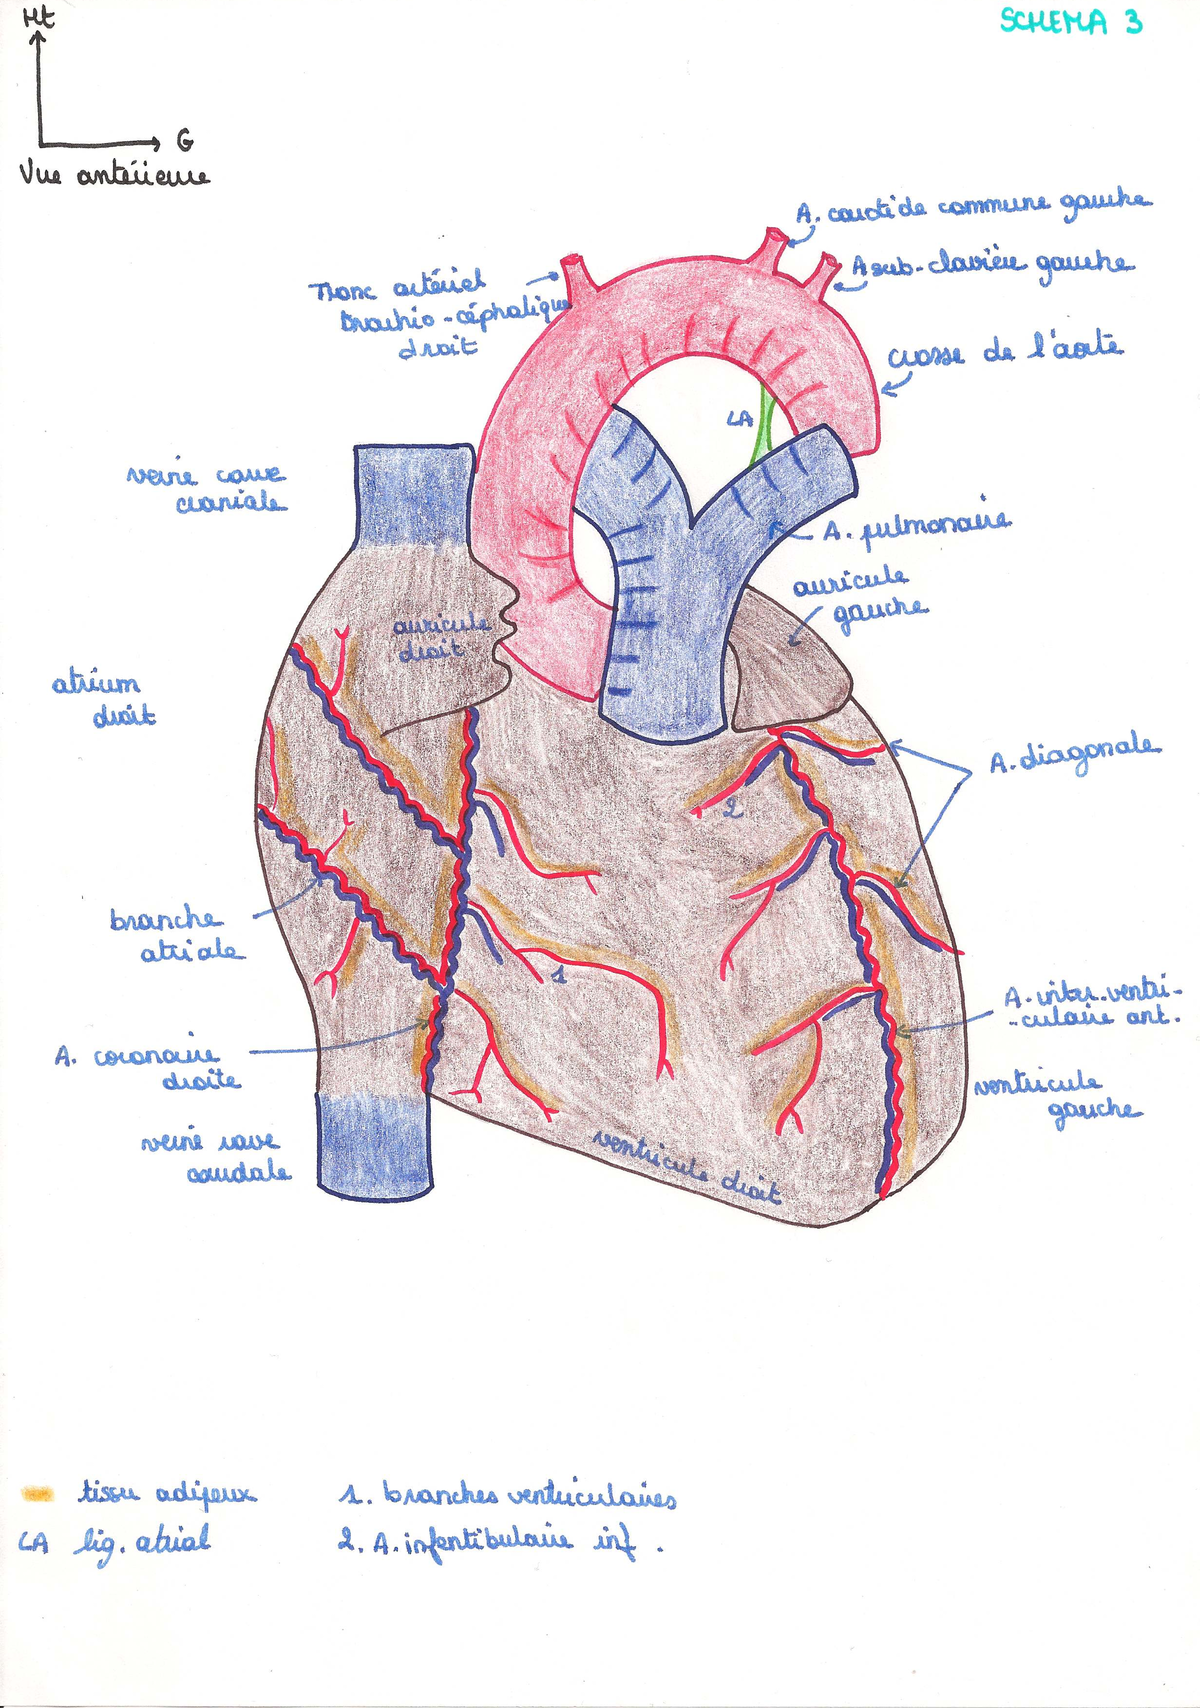 Ht
SCHEMA 3
G
Vue antérieure
A. carotide commune gauche
A sub-clavière gauche
Tronc artériel
brachio-céphalique
droit
crosse de l'aorte
LA
veine cave
craniale
A. pulmonaire
auricule
gauche
auricule
droit
atrium
droit
A. diagonale
2
branche
atriale
1
A. inter.ventri-
-culaire ant.
A. coronaire
droite
ventricule
gauche
veine cave
caudale
ventricule droit
tissu adipeux
1. branches ventriculaires
LA lig. atrial
2. A. infentibulaire inf.